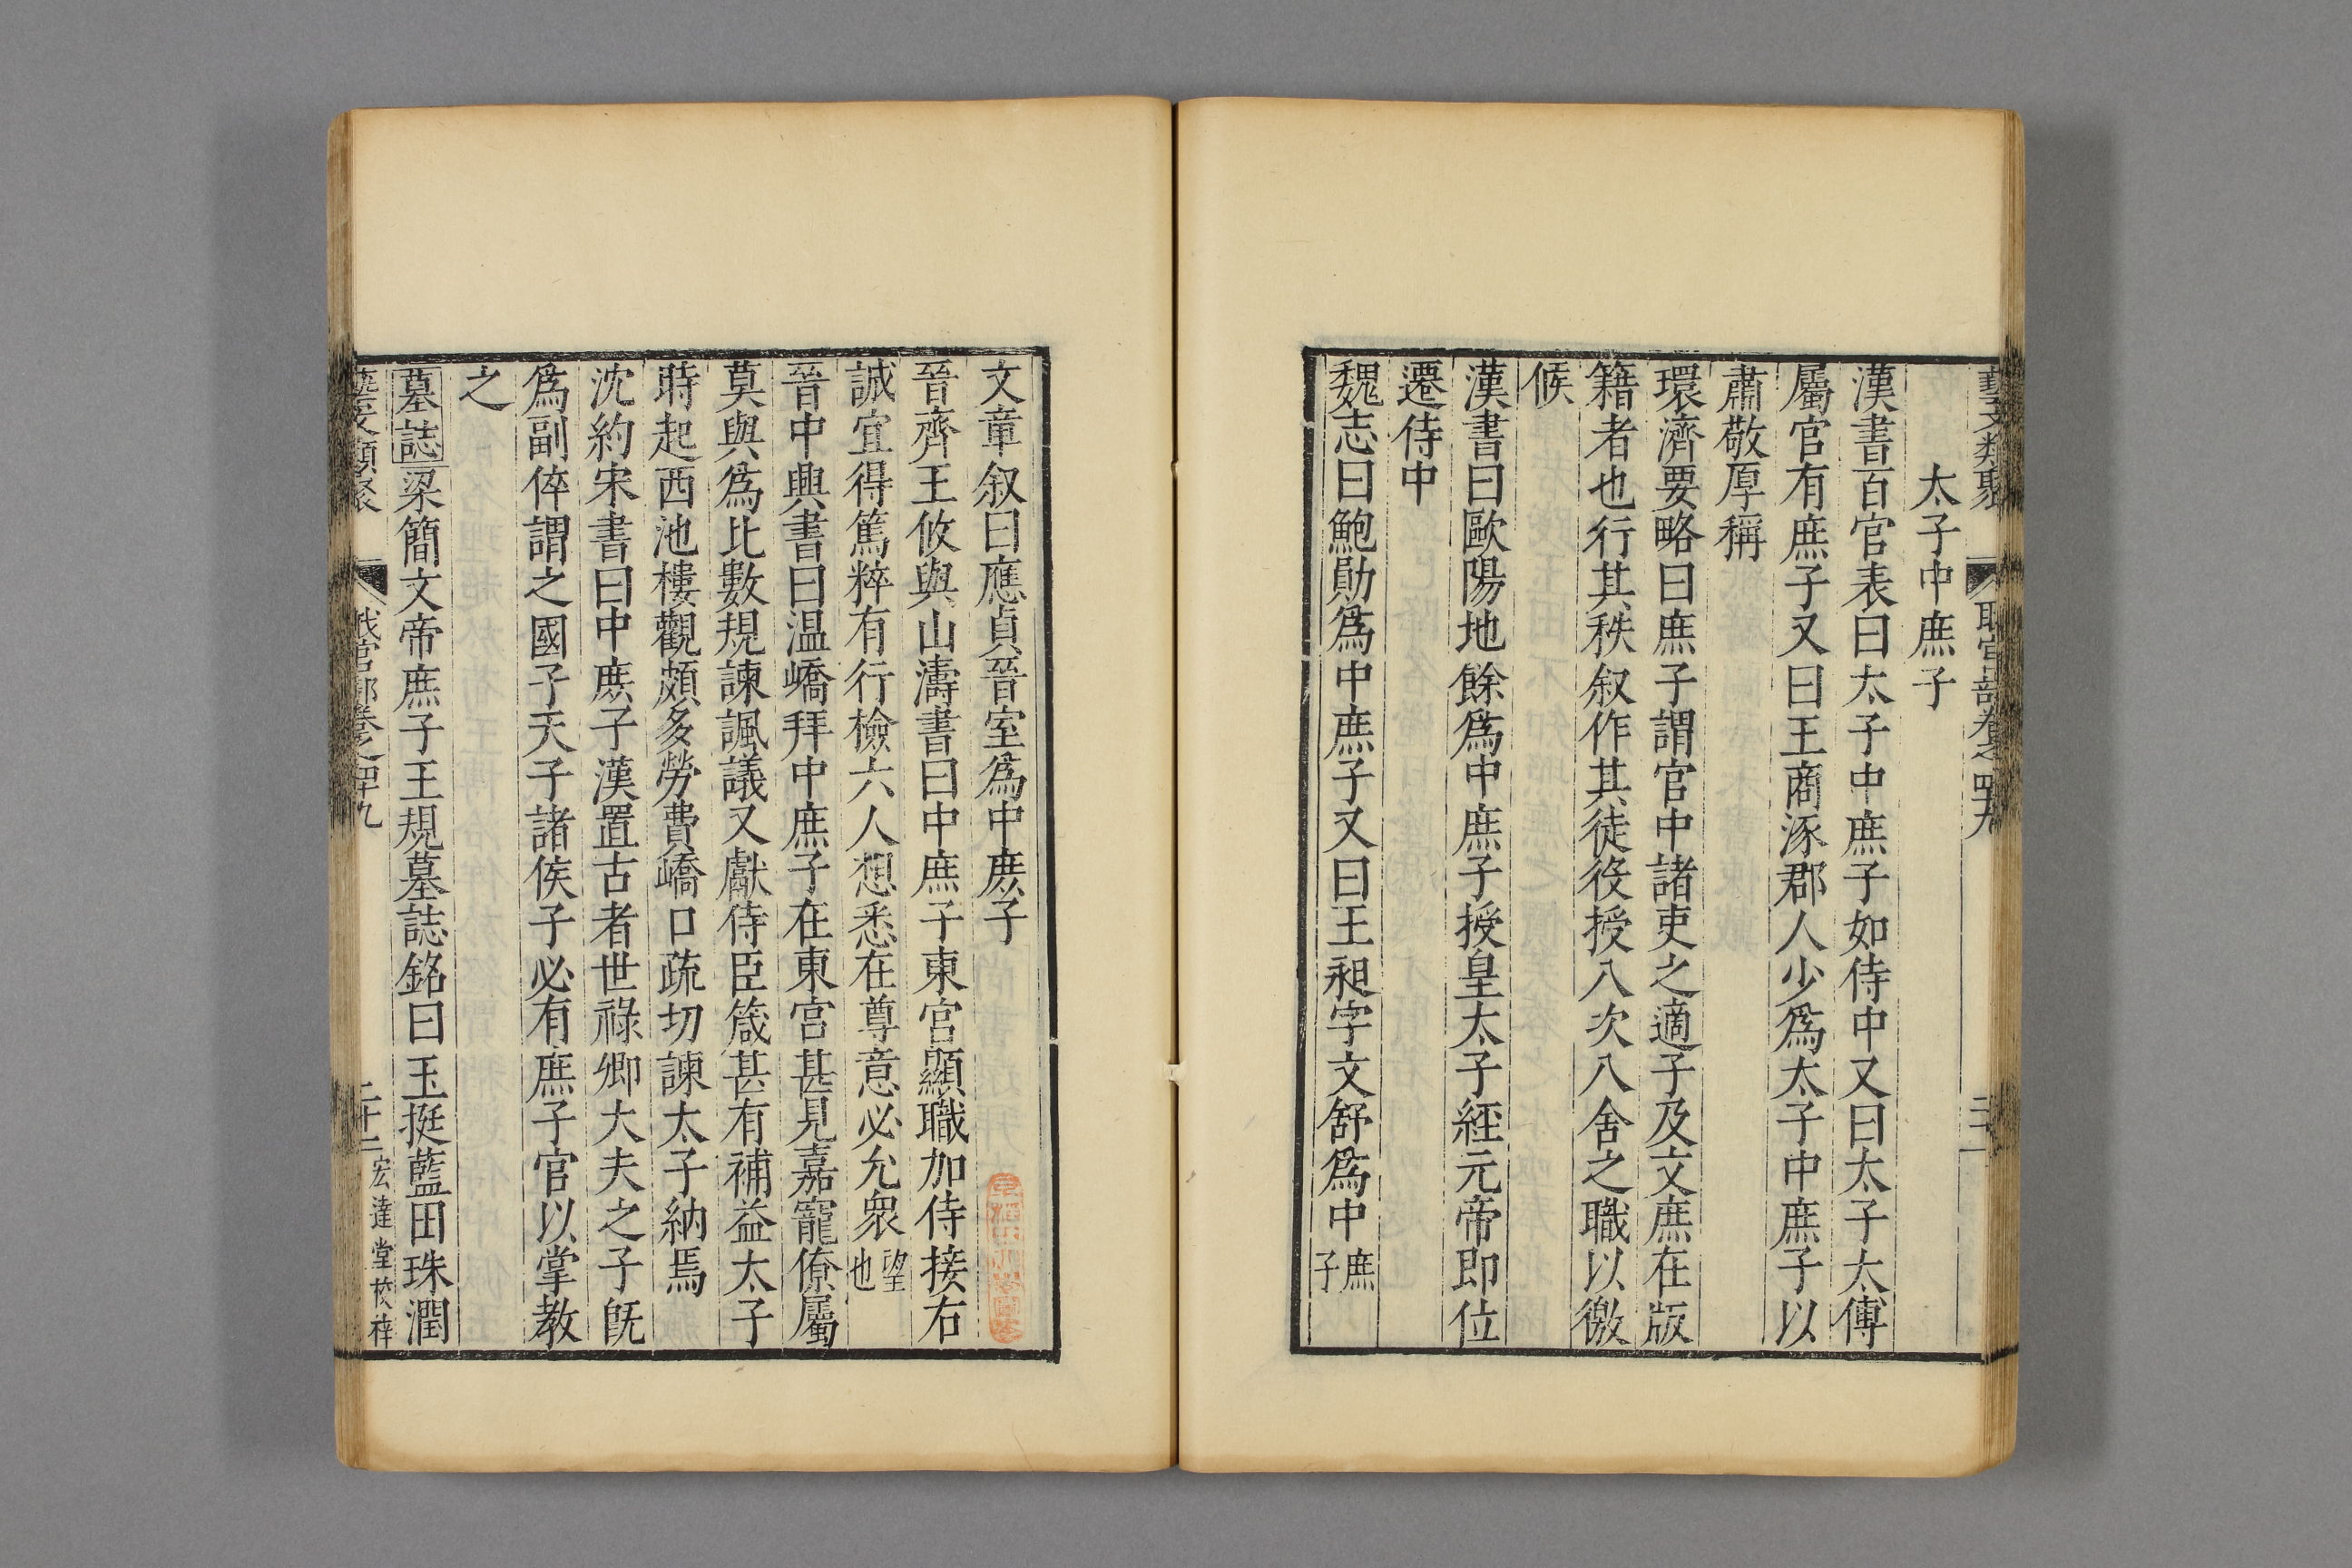 藝文類聚 職官部卷之四十九
太子中庶子
漢書百官表曰太子中庶子如侍中又曰太子太傅
屬官有庶子又曰王商涿郡人少爲太子中庶子以
肅敬厚稱
環濟要略曰庶子謂官中諸吏之適子及文庶在版
籍者也行其秩叙作其徒役授八次八舍之職以徼
候
漢書曰歐陽地餘爲中庶子授皇太子經元帝即位
遷侍中
魏志曰鮑勛爲中庶子又曰王昶字文舒爲中庶子
文章叙曰應貞晉室爲中庶子
晉齊王攸與山濤書曰中庶子東宮顯職加侍接右
誠宜得篤粹有行檢六人想悉在尊意必允衆望也
晉中興書曰温嶠拜中庶子在東宮甚見嘉寵僚屬
莫與爲比數規諫諷議又獻侍臣箴甚有補益太子
時起西池樓觀頗多勞費嶠口疏切諫太子納焉
沈約宋書曰中庶子漢置古者世祿卿大夫之子旣
爲副倅謂之國子天子諸侯子必有庶子官以掌教
之
墓誌梁簡文帝庶子王規墓誌銘曰 玉挺藍田珠潤
藝文類聚 職官部卷之四十九 二十二 宏達堂校梓